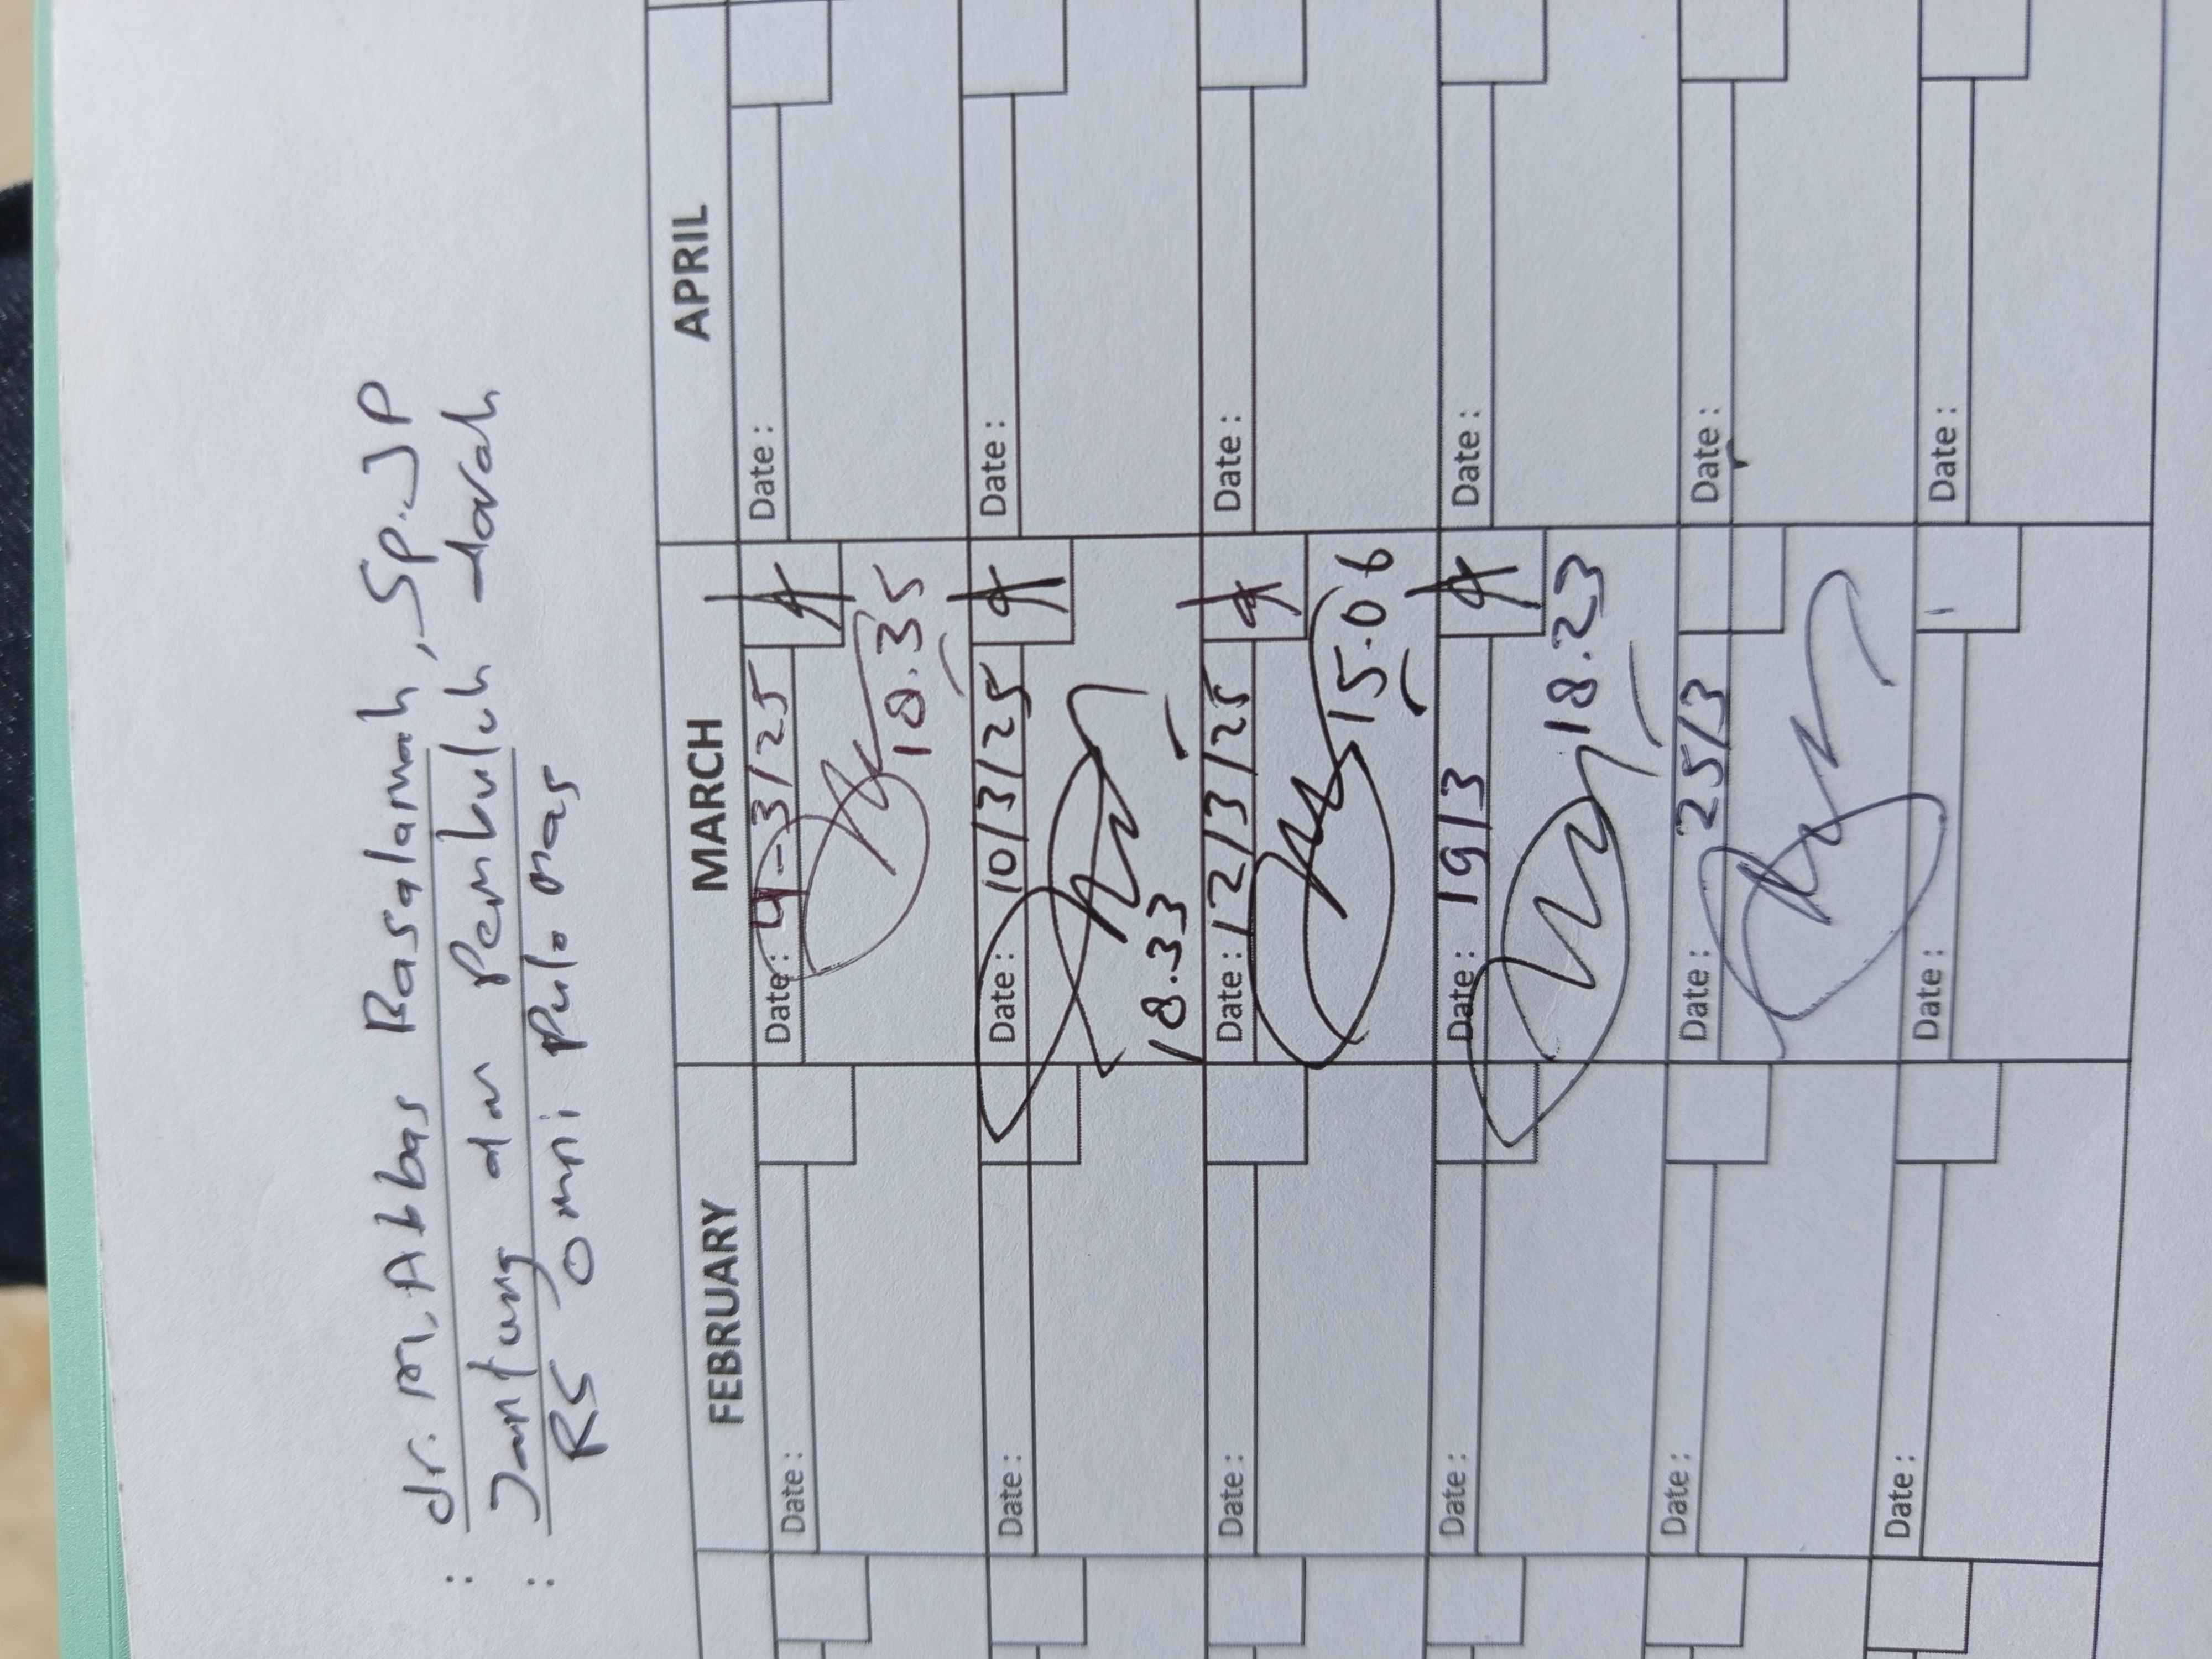 : dr. M. Abbas Basalamah, Sp.JP
: Jantung dan Pembuluh darah
RS Omni Pulo Mas
FEBRUARY MARCH APRIL
Date : Date : 4-3/25 Date :
18.35
Date : Date : 10/3/25 Date :
18.33
Date : Date : 12/3/25 Date :
15.06
Date : Date : 19/3 Date :
18.23
Date : Date : 25/3 Date :
Date : Date : Date :